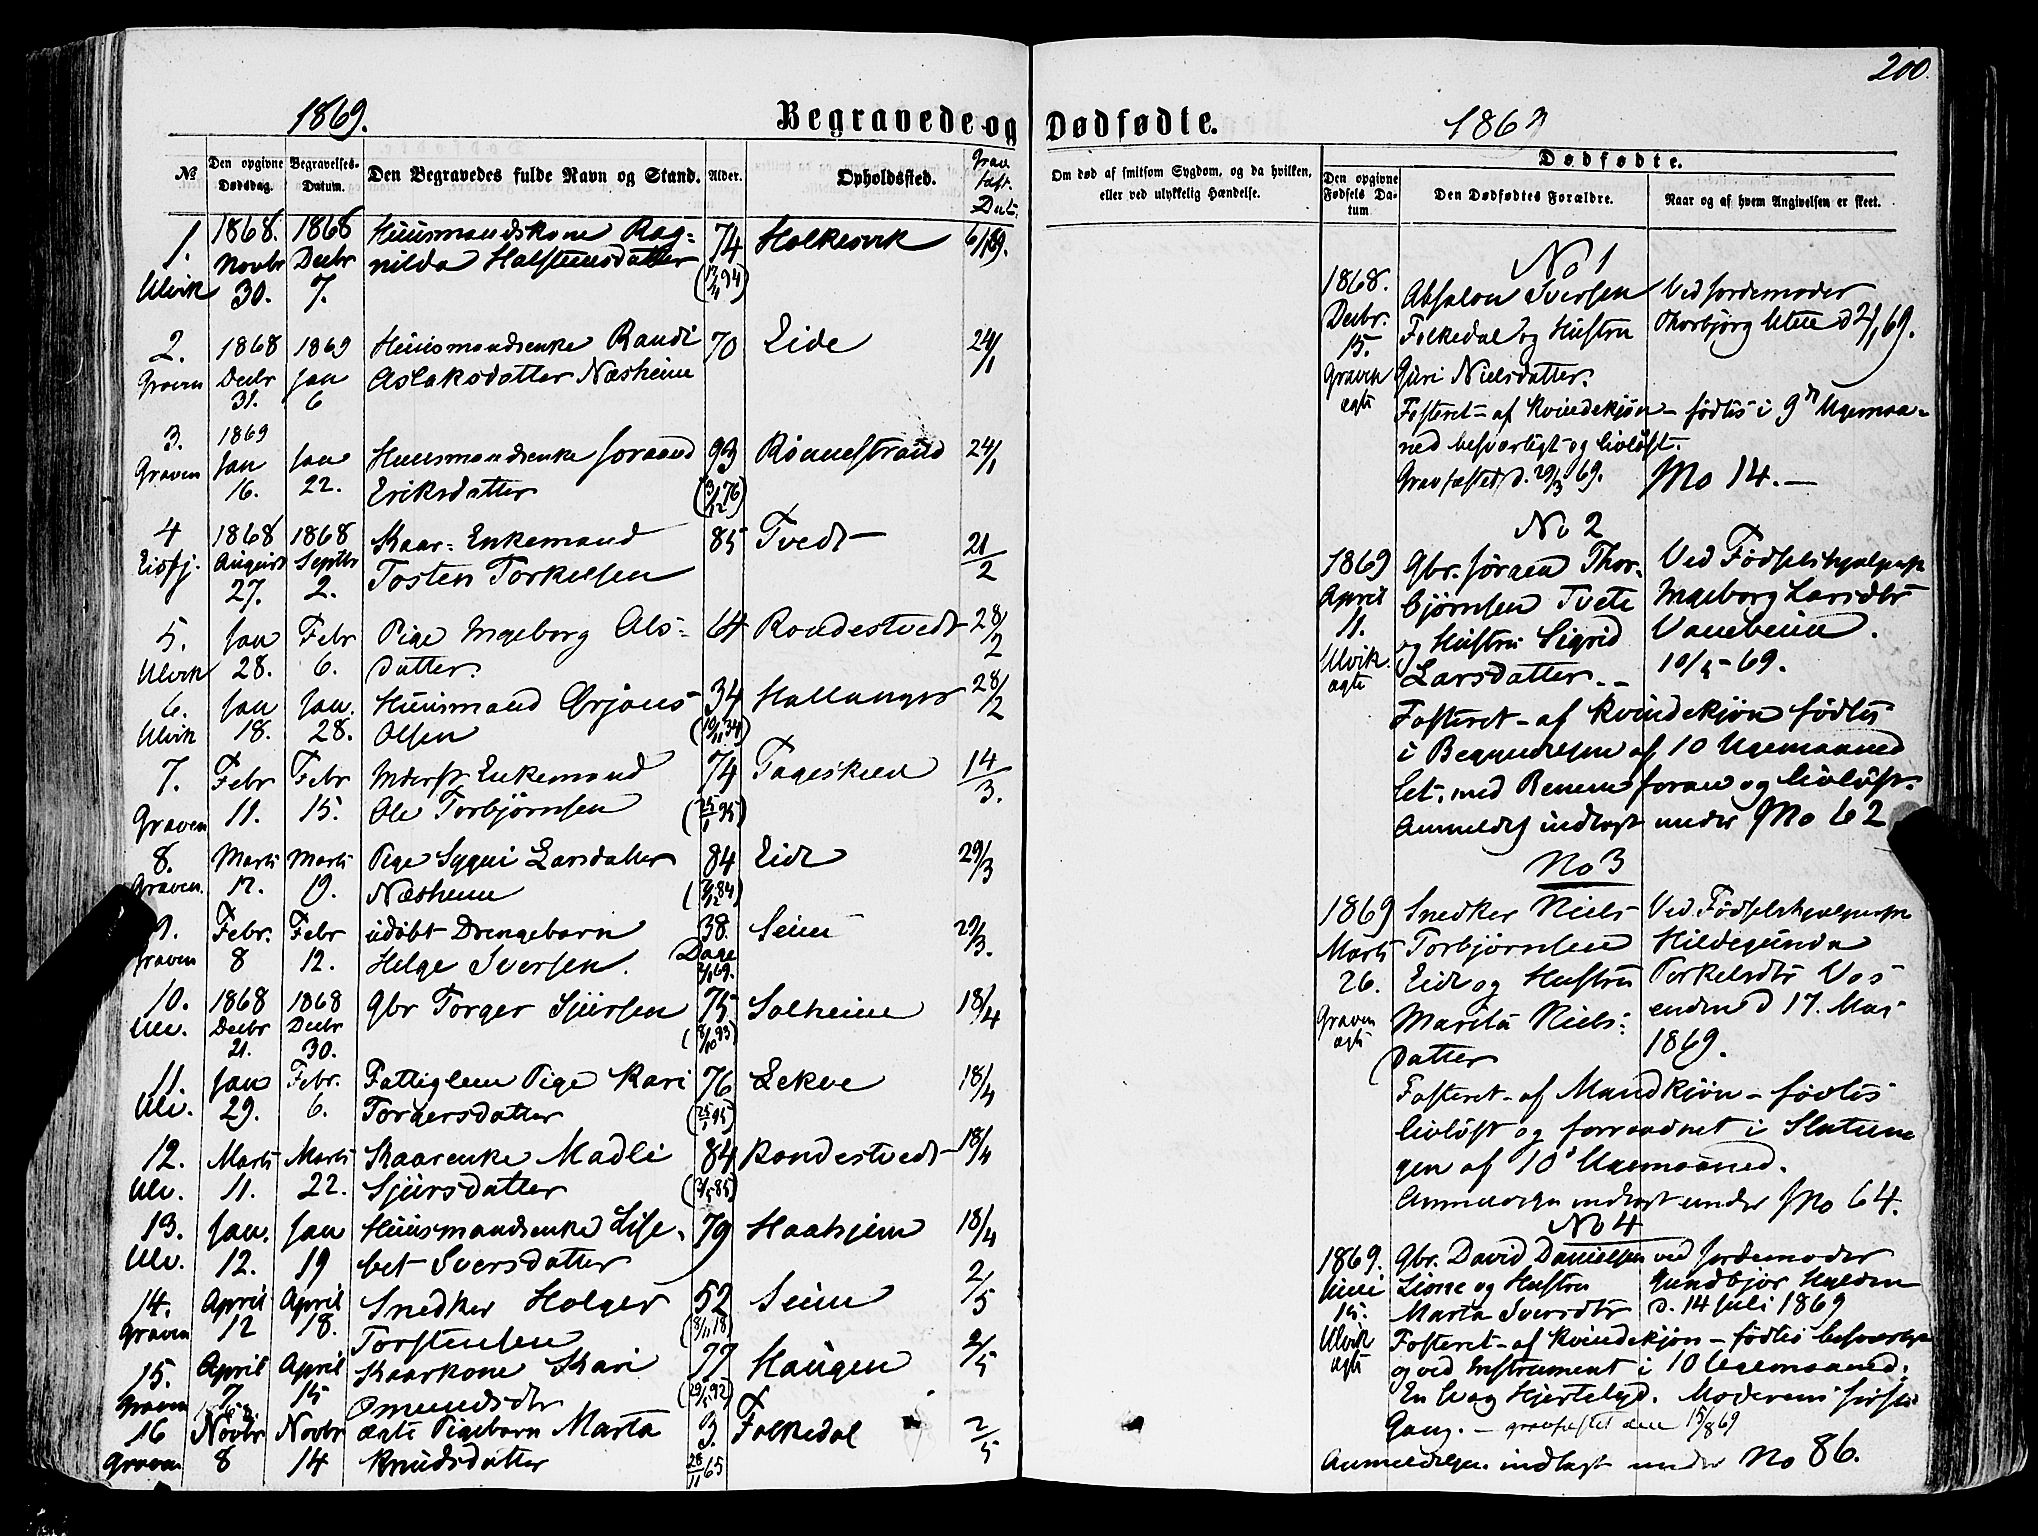 200.
1869.
Begravede og Dødfødte.
1869
№
Den opgivne Dødsdag.
Begravelses-Datum.
Den Begravedes fulde Navn og Stand.
Alder.
Opholdssted.
Grav fæst. Dat.
Om død af smitsom Sygdom, og da hvilken, eller ved ulykkelig Hændelse.
Dødfødte.
Den opgivne Fødsels Datum
Den Dødfødtes Forældre.
Naar og af hvem Angivelsen er skeet.
1. 1868. 1868 Huusmandskone Rag= 74 Holkesvik 6/1 69.
Novbr Decbr nilda Halsteinsdatter
Ulvik 30. 7.
2. 1868 1869 Huusmandsenke Randi 70 Eide 24/1
Graven Decbr Jan Aslaksdatter Næsheim
31. 6
3. 1869
Graven Jan Jan Huusmandsenke Joraand 93 Rønnestrand 24/1
16. 22. Eriksdatter (3/12 76)
4 1868 1868 Kaar= Enkemand 85 Tvedt 21/2
Eidfj. August Septbr Tosten Torkelsen
27. 2.
5. Jan Febr Pige Ingeborg Ols= 64 Rondestvedt 28/2
Ulvik 28. 6. datter.
6. Jan Jan. Huusmand Ørjans 34 Hallanger 28/2
Ulvik 18. 28. Olsen (10/11 34)
7. Febr Febr Inderst Enkemand 74 14/3.
Graven 11. 15. Ole Torbjørnsen
8. Marts Marts Pige Sygni Larsdatter 84 Eide 29/3
Graven. 12. 19. Næsheim
9. Febr. Febr udøbt Drengebarn 38. Seim 29/3.
Graven 8 12. Helge Iversen. Dage
10. 1868 1868 Gbr Torger Sjursen 75 Solheim 18/4
Ulv. Decbr Decbr
21. 30.
11. Jan Febr. Fattiglem Pige Kari 76 Lekve 18/4
Ulv. 29. 6. Torgersdatter
12. Marts Marts Kaarenke Madli 84 Rondestvedt 18/4
Ulv. 11. 22. Sjursdatter
13. Jan. Jan Huusmandsenke Lise= 79 Haaheim 18/4
Ulv. 12. 19 bet Iversdatter
14. April April Snedker Holger 52 Seim 2/5
Graven 12 18. Torstensen (8/11 18)
15. April April Kaarkone Kari 77 Haugen 2/5
Graven 7 15 Omundsdtr
16 Novbr Novbr ægte Pigebarn Marta 3. Folkedal 2/5
Graven 8 14 Knudsdatter 28/11 65
No 1
1868. Absalon Iversen Ved Jordemoder
Decbr. Folkedal og Hustru Thorbjørg Utne d 2/1 69.
15.
Graven Guri Nielsdatter.
ægte Fosteret - af Kvindekjøn - fødtes i 9de Ugemaa=
ned besværligt og livløst.
Gravfæstet d. 29/3 69. No 14. —
No 2
1869 Gbr. Jørgen Thor= Ved Fødselshjælpersk
April bjørnsen Tveite Ingeborg Larsdtr
11. og Hustru Sigrid Vambeim.
Ulvik Larsdatter. - 10/5 - 69.
ægte
Fosteret - af Kvindekjøn fødtes
i Begyndelsen af 10 Ugemaaned
let, med Benene foran og livløst.
Anmeldes indlagt under No 62
No 3
1869 Snedker Niels Ved Fødselshjælpersk
Marts Torbjørnsen Hildegunda
26. Eide og Hustru Torkelsdtr Vos
Graven Marita Niels= enden d 17. Mai
ægte datter 1869.
Fosteret - af Mandkjøn - fødtes
livløst og forraadnet i Slutnin
gen af 10de Ugemaaned.
Anmeldelsen indlagt under No 64.
No 4
1869. Gbr. David Danielsen ved Jordemoder
Juni Lione og Hustru Gundbjør Hylden
15. Marta Iversdtr d. 14 Juli 1869
Ulvik Fosteret - af Kvindekjøn - fødtes besværligt
ægte og ved Instrument i 10 Ugemaaned.
En svag Hjertelyd. Moderens første
Gang. - gravfæstet den 15/8 69
Anmeldelsen indlagt under No 86.